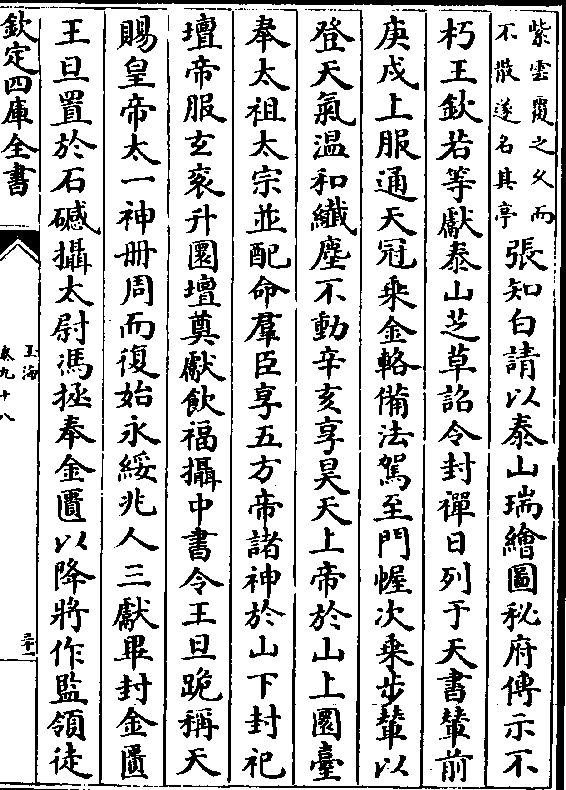 紫雲覆之久而
不散遂名其亭
張知白請以泰山瑞繪圖秘府傳示不
朽王欽若等獻泰山芝草詔令封禪日列于天書輦前
庚戌上服通天冠乘金輅備法駕至門幄次乘步輦以
登天氣温和纖塵不動辛亥享昊天上帝於山上圜臺
奉太祖太宗並配命羣臣享五方帝諸神於山下封祀
壇帝服玄衮升圜壇奠獻飲福攝中書令王旦跪稱天
賜皇帝太一神册周而復始永綏兆人三獻畢封金匱
王旦置於石䃭攝太尉馮拯奉金匱以降將作監領徒
欽定四庫全書
玉海
卷九十八